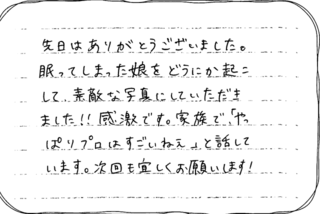 先日はありがとうございました。
眠ってしまった娘をどうにか起こ
して、素敵な写真にしていただき
ました!!感激です。家族で、「やっ
ぱりプロはすごいねぇ」と話して
います。次回も宜しくお願いします!